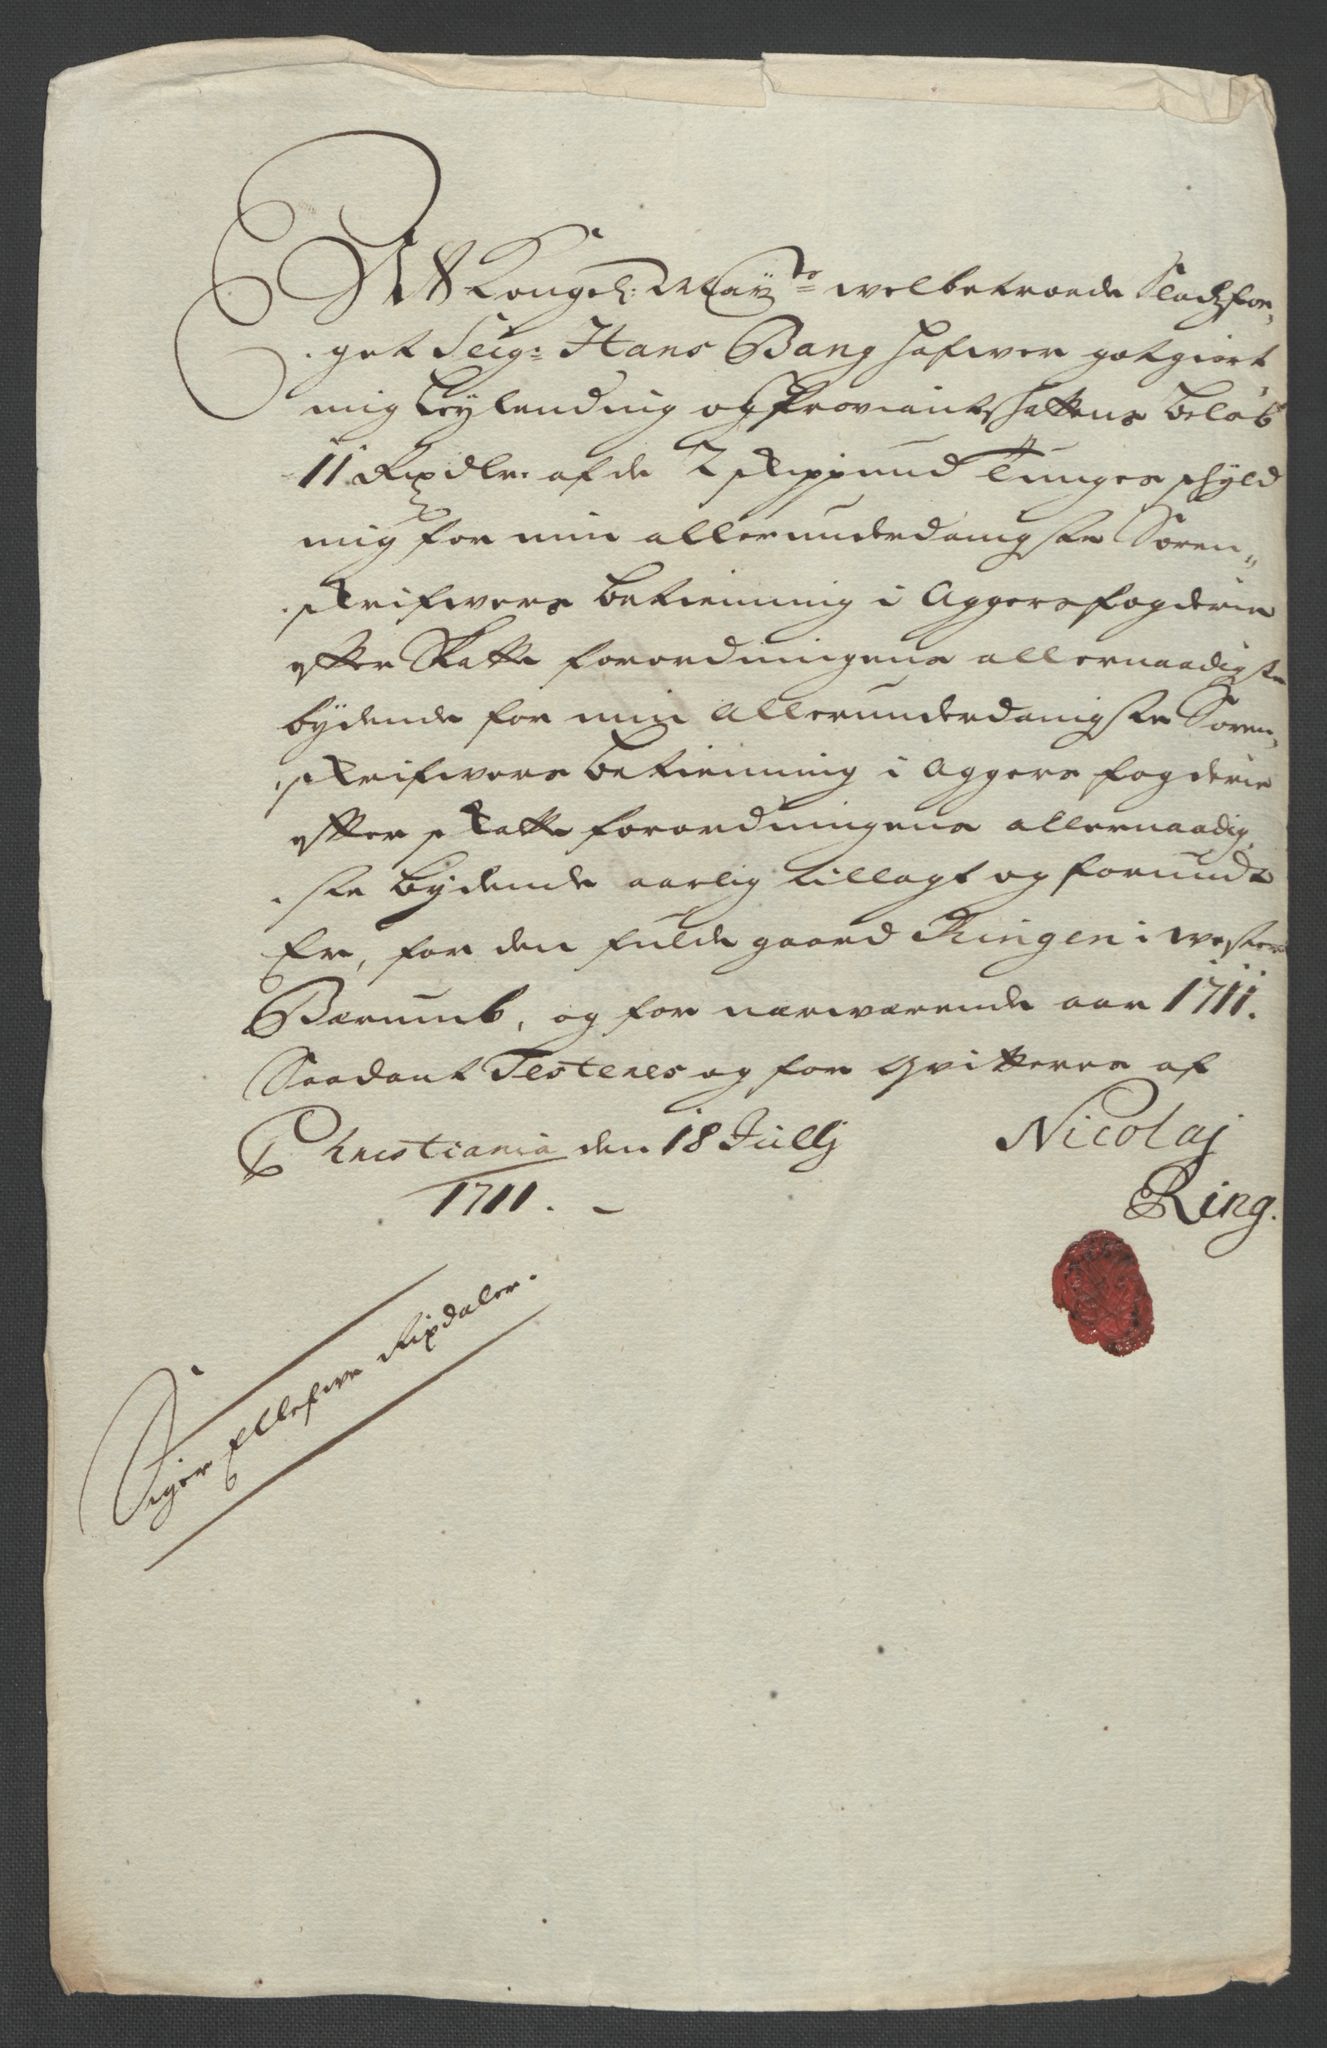 At Kongel: May:ts welbetroede Slodsfo-
get Seig: Hans Bang hafwer gotgiort
mig Leylending og Proviantskattens beløb
11 Rixdlr. af de 2 skippund Tunges skyld
mig for min allerunderdanigste Soren-
skrifwers betienning i Aggersfogderie
efter Skatte forordningens allernaadigste
bydende for min allerunderdanigste Soren-
skrifwers betienning i Aggers fogderie
efter skatte forordningens allernaadig-
ste bydende aarlig tillagt og forundt
Er, for den fulde gaard Ringen i wester
Bærumb, og for nærwærende aar 1711.
Saadant Testeres og for Qvitteres af
Christiania den 18 Jullj
1711. -
Nicolaj
Ring.
Siger Ellefwe Rixdaler.